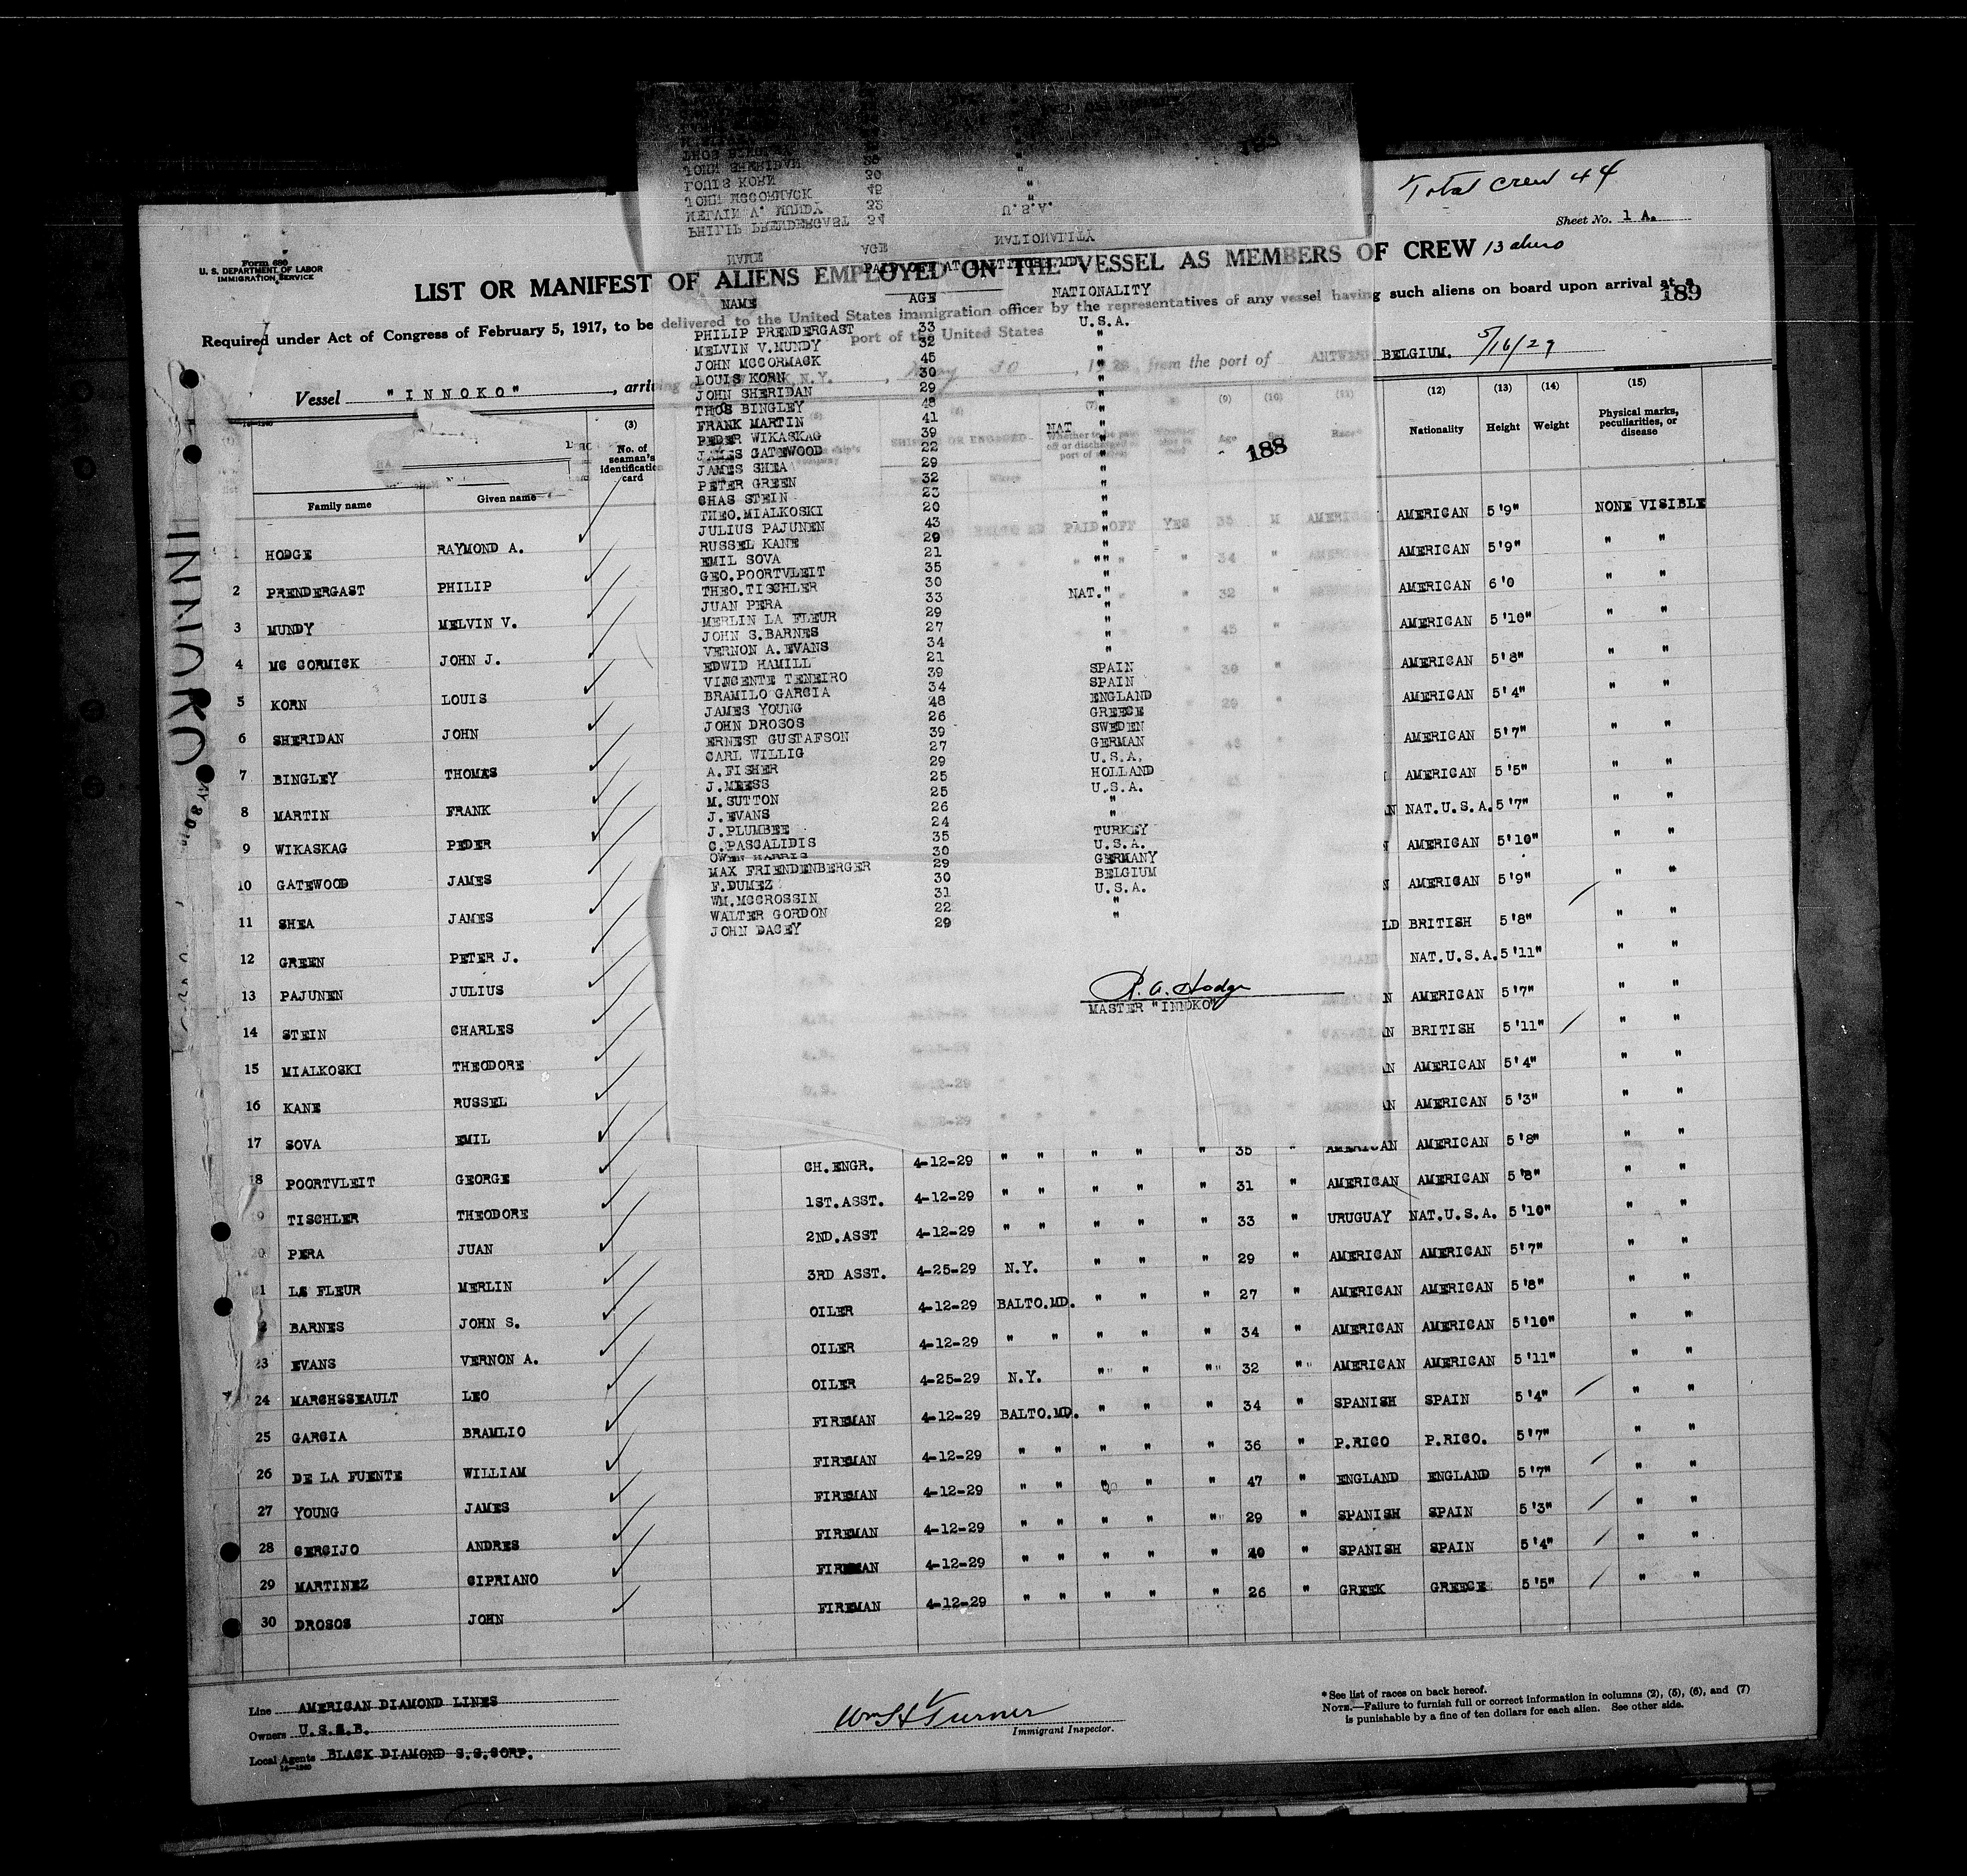 Total Crew 44
Sheet No. 1 A.
Form 680
U. S. DEPARTMENT OF LABOR
IMMIGRATION SERVICE
LIST OR MANIFEST OF ALIENS EMPLOYED ON THE VESSEL AS MEMBERS OF CREW 13 aliens
189
Required under Act of Congress of February 5, 1917, to be delivered to the United States immigration officer by the representatives of any vessel having such aliens on board upon arrival at a
port of the United States
Vessel "INNOKO", arriving N.Y., May 30, 1929, from the port of ANTWERP BELGIUM. 5/16/29
NAME AGE NATIONALITY
PHILIP PRENDERGAST 33 U.S.A.
MELVIN V.MUNDY 32 "
JOHN MCCORMACK 45 "
LOUIS KORN 30 "
JOHN SHERIDAN 29 "
THOS BINGLEY 48 "
FRANK MARTIN 41 "
PEDER WIKASKAG 39 NAT "
JAMES GATEWOOD 22 "
JAMES SHEA 29 "
PETER GREEN 32 "
CHAS STEIN 23 "
THEO.MIALKOSKI 20 "
JULIUS PAJUNEN 43 "
RUSSEL KANE 29 "
EMIL SOVA 21 "
GEO.POORTVLEIT 35 "
THEO.TISCHLER 30 "
JUAN PERA 33 NAT."
MERLIN LA FLEUR 29 "
JOHN S.BARNES 27 "
VERNON A.EVANS 34 "
EDWID HAMILL 21 "
VINCENTE TENEIRO 39 SPAIN
BRAMILO GARCIA 34 SPAIN
JAMES YOUNG 48 ENGLAND
JOHN DROSOS 26 GREECE
ERNEST GUSTAFSON 39 SWEDEN
CARL WILLIG 27 GERMAN
A.FISHER 29 U.S.A.
J.MEESS 25 HOLLAND
M.SUTTON 25 U.S.A.
J.EVANS 26 "
J.PLUMBEE 24 "
C.PASCALIDIS 35 TURKEY
OWEN HARRIS 30 U.S.A.
MAX FRIENDENBERGER 29 GERMANY
F.DUMEZ 30 BELGIUM
WM.MCCROSSIN 31 U.S.A.
WALTER GORDON 22 "
JOHN DACEY 29 "
188
R. A. Hodge
MASTER "INNOKO"
(3) No. of seaman's identification card
(9) Age
(12) Nationality
(13) Height
(14) Weight
(15) Physical marks, peculiarities, or disease
Family name Given name
1 HODGE RAYMOND A. PAID OFF YES 35 M AMERICAN AMERICAN 5'9" NONE VISIBLE
2 PRENDERGAST PHILIP 34 AMERICAN 5'9" " "
3 MUNDY MELVIN V. 32 AMERICAN 6'0 " "
4 MC CORMICK JOHN J. 45 AMERICAN 5'10" " "
5 KORN LOUIS 30 AMERICAN 5'8" " "
6 SHERIDAN JOHN 29 AMERICAN 5'4" " "
7 BINGLEY THOMAS AMERICAN 5'7" " "
8 MARTIN FRANK AMERICAN 5'5" " "
9 WIKASKAG PEDER NAT.U.S.A. 5'7" " "
10 GATEWOOD JAMES AMERICAN 5'10" " "
11 SHEA JAMES AMERICAN 5'9" " "
12 GREEN PETER J. BRITISH 5'8" " "
13 PAJUNEN JULIUS NAT.U.S.A. 5'11" " "
14 STEIN CHARLES AMERICAN 5'7" " "
15 MIALKOSKI THEODORE BRITISH 5'11" " "
16 KANE RUSSEL AMERICAN 5'4" " "
17 SOVA EMIL AMERICAN 5'3" " "
18 POORTVLEIT GEORGE CH.ENGR. 4-12-29 " " " " " 35 " AMERICAN AMERICAN 5'8" " "
19 TISCHLER THEODORE 1ST.ASST. 4-12-29 " " " " " 31 " AMERICAN AMERICAN 5'8" " "
20 PERA JUAN 2ND.ASST 4-12-29 " " " " " 33 " URUGUAY NAT.U.S.A. 5'10" " "
21 LE FLEUR MERLIN 3RD ASST. 4-25-29 N.Y. " " " 29 " AMERICAN AMERICAN 5'7" " "
BARNES JOHN S. OILER 4-12-29 BALTO.MD. " " " 27 " AMERICAN AMERICAN 5'8" " "
23 EVANS VERNON A. OILER 4-12-29 " " " " " 34 " AMERICAN AMERICAN 5'10" " "
24 MARCHSSEAULT LEO OILER 4-25-29 N.Y. " " " 32 " AMERICAN AMERICAN 5'11" " "
25 GARCIA BRAMLIO FIREMAN 4-12-29 BALTO.MD. " " " 34 " SPANISH SPAIN 5'4" " "
26 DE LA FUENTE WILLIAM FIREMAN 4-12-29 " " " " " 36 " P.RICO P.RICO. 5'7" " "
27 YOUNG JAMES FIREMAN 4-12-29 " " " " " 47 " ENGLAND ENGLAND 5'7" " "
28 CERCIJO ANDRES FIREMAN 4-12-29 " " " " " 29 " SPANISH SPAIN 5'3" " "
29 MARTINEZ CIPRIANO FIREMAN 4-12-29 " " " " " 40 " SPANISH SPAIN 5'4" " "
30 DROSOS JOHN FIREMAN 4-12-29 " " " " " 26 " GREEK GREECE 5'5" " "
INNOKO
Line AMERICAN DIAMOND LINES
Owners U.S.S.B.
Local Agents BLACK DIAMOND S.S.CORP.
Wm H Turner
Immigrant Inspector.
*See list of races on back hereof.
NOTE.—Failure to furnish full or correct information in columns (2), (5), (6), and (7)
is punishable by a fine of ten dollars for each alien. See other side.